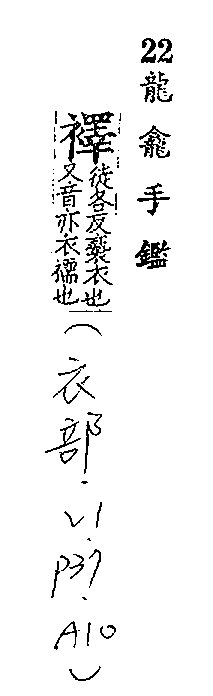 22龍龕手鑑
襗徒各反褻衣也
又音亦衣襦也
(衣部.V1.P37.A10)